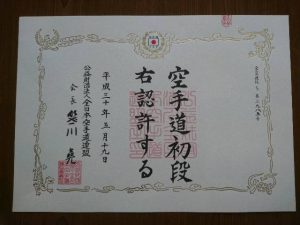 空手道初段
右認許する
平成三十年五月十九日
公益財団法人全日本空手道連盟
会長 笹川 堯